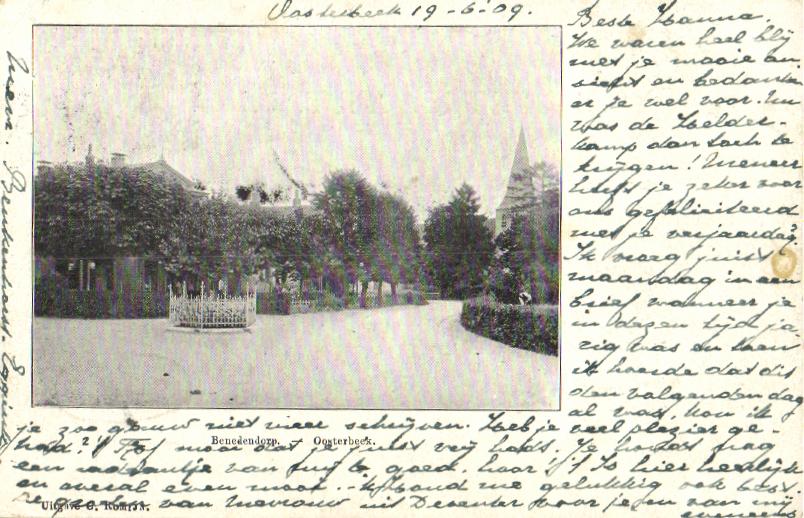 Oosterbeek 19-6-09.
Beste Hanna.
We waren heel blij
met je mooie an-
sicht en bedanken
er je wel voor. Nu
was de Helder-
kamp dan toch te
krijgen! Meneer
heeft je zeker voor
ons gefeliciteerd
met je verjaardag?
Ik vroeg juist
maandag in een
brief wanneer je
in dezen tijd ja-
rig was en toen
ik hoorde dat dit
den volgenden dag
al was, kon ik
je zoo gauw niet meer schrijven. Heb je veel plezier ge-
had? Tof maar dat je juist vrij hads. Je houdt nog
een van mij te goed, hoor! Is hier heerlijk
en overal even mooi. ik vond me gelukkig ook best
De groeten van Mevrouw uit Deventer voor je, en van mij
eveneens
Benedendorp. — Oosterbeek.
Uitgave G. Romijn.